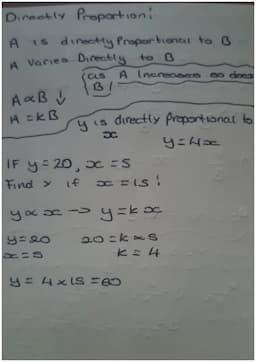 Directly Proportion:
A is directly Proportional to B
A Varies Directly to B
(as A Increases so does
B)
A ∝ B ↓
A = kB
y is directly proportional to
x
y = 4x
IF y = 20, x = 5
Find y if x = 15:
y ∝ x → y = kx
y = 20 20 = k × 5
x = 5 k = 4
y = 4 × 15 = 60